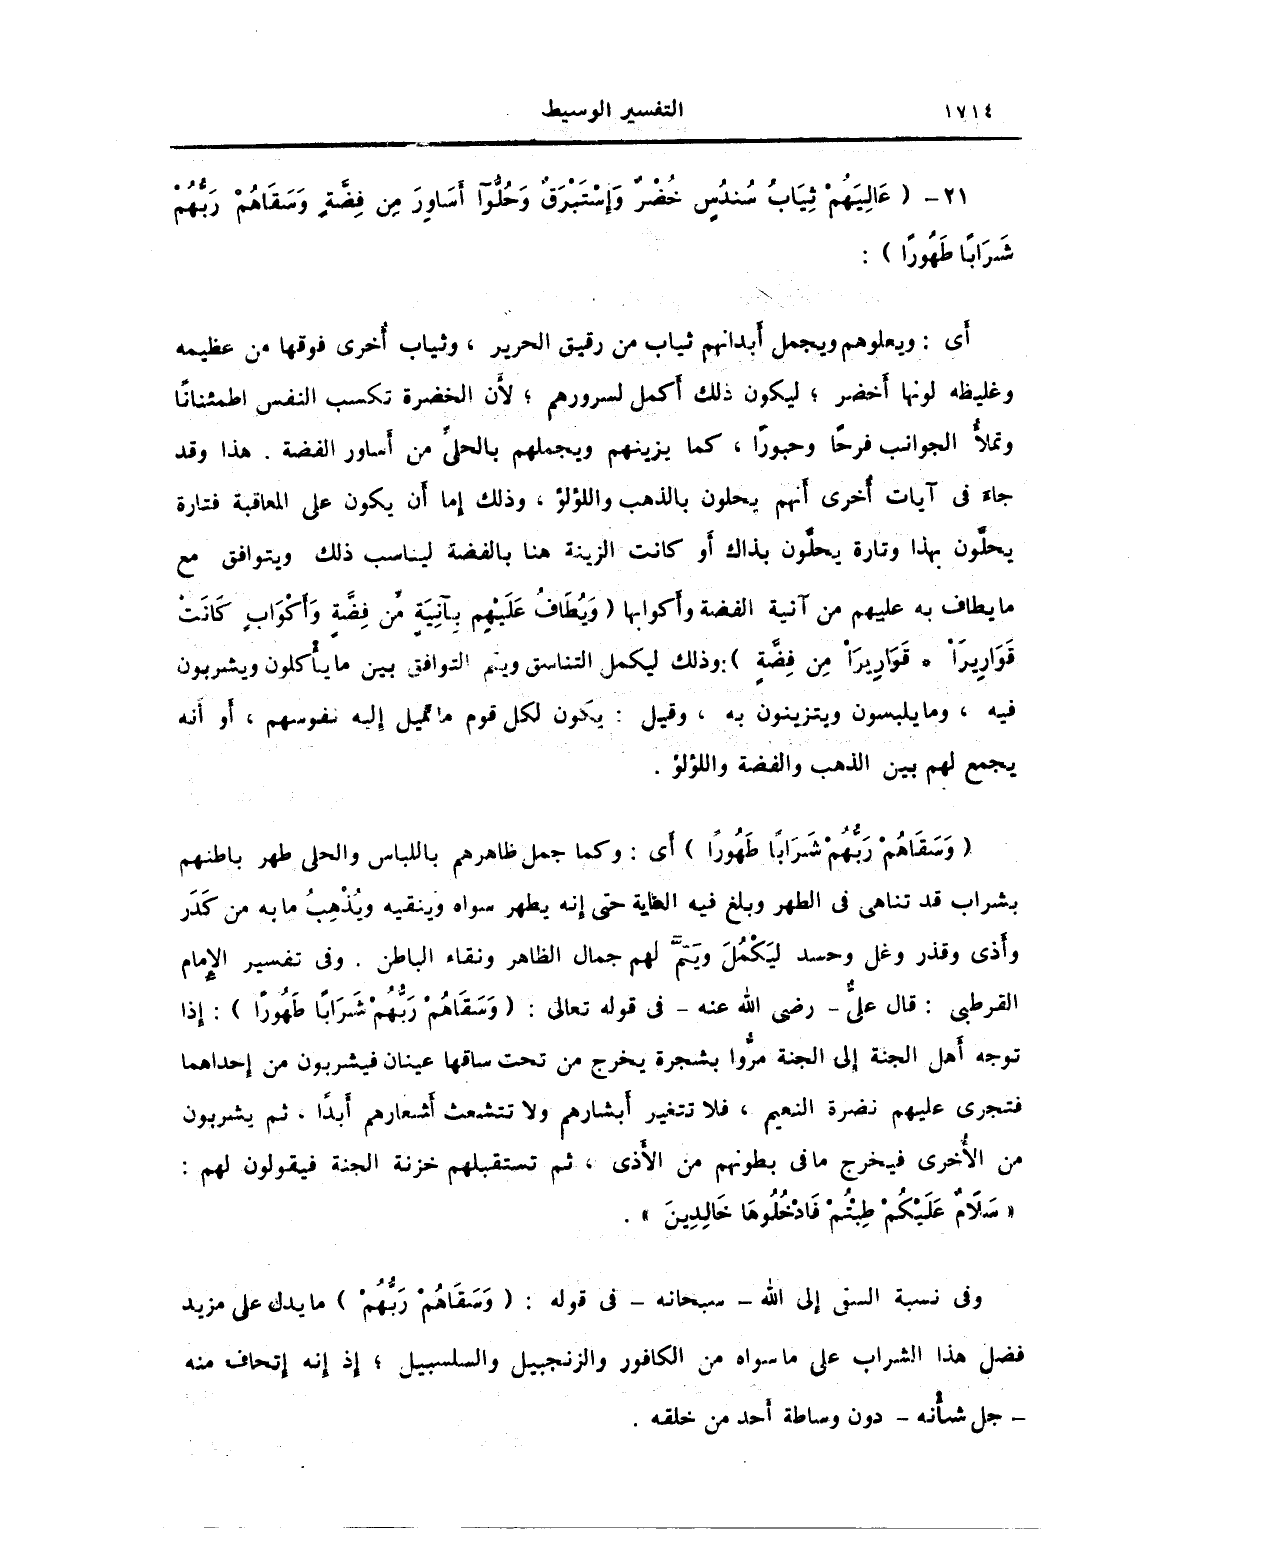 ١٧١٤
التفسير الوسيط
٢١ـ ( عَالِيَهُمْ ثِيَابُ سُندُسٍ خُضْرٌ وَإِسْتَبْرَقٌ وَحُلُّوٓا أَسَاوِرَ مِن فِضَّةٍ وَسَقَاهُمْ رَبُّهُمْ
شَرَابًا طَهُورًا ) :
أَى : ويعلوهم ويجمل أَبدانهم ثياب من رقيق الحرير ، وثياب أُخرى فوقها من عظيمه
وغليظه لونها أَخضر ؛ ليكون ذلك أَكمل لسرورهم ؛ لأَن الخضرة تكسب النفس اطمئنانًا
وتملأُ الجوانب فرحًا وحبورًا ، كما يزينهم ويجملهم بالحلىِّ من أَساور الفضة . هذا وقد
جاءَ فى آيات أُخرى أَنهم يحلون بالذهب واللؤلؤ ، وذلك إما أَن يكون على المعاقبة فتارة
يحلَّون بهذا وتارة يحلَّون بذاك أَو كانت الزينة هنا بالفضة ليناسب ذلك ويتوافق مع
مايطاف به عليهم من آنية الفضة وأَكوابها ( وَيُطَافُ عَلَيْهِم بِآنِيَةٍ مِّن فِضَّةٍ وَأَكْوَابٍ كَانَتْ
قَوَارِيرَاْ ه قَوَارِيرَاْ مِن فِضَّةٍ ):وذلك ليكمل التناسق ويتم التوافق بين مايأْكلون ويشربون
فيه ، ومايلبسون ويتزينون به ، وقيل : يكون لكل قوم ماتميل إليه نفوسهم ، أَو أَنه
يجمع لهم بين الذهب والفضة واللؤلؤ .
( وَسَقَاهُمْ رَبُّهُمْ شَرَابًا طَهُورًا ) أَى : وكما جمل ظاهرهم باللباس والحلى طهر باطنهم
بشراب قد تناهى فى الطهر وبلغ فيه الغاية حتى إنه يطهر سواه وينقيه ويُذْهِبُ مابه من كَدَر
وأَذى وقذر وغل وحسد لِيَكْمُلَ ويَتمَّ لهم جمال الظاهر ونقاء الباطن . وفى تفسير الإِمام
القرطبى : قال علىٌّ ـ رضى الله عنه ـ فى قوله تعالى : ( وَسَقَاهُمْ رَبُّهُمْ شَرَابًا طَهُورًا ) : إذا
توجه أَهل الجنة إلى الجنة مرُّوا بشجرة يخرج من تحت ساقها عينان فيشربون من إحداهما
فتجرى عليهم نضرة النعيم ، فلا تتغير أَبشارهم ولا تتشعث أَشعارهم أَبدًا ، ثم يشربون
من الأُخرى فيخرج مافى بطونهم من الأَذى ، ثم تستقبلهم خزنة الجنة فيقولون لهم :
« سَلَامٌ عَلَيْكُمْ طِبْتُمْ فَادْخُلُوهَا خَالِدِينَ » .
وفى نسبة السقى إلى الله ـ سبحانه ـ فى قوله : ( وَسَقَاهُمْ رَبُّهُمْ ) مايدل على مزيد
فضل هذا الشراب على ماسواه من الكافور والزنجبيل والسلسبيل ؛ إذ إنه إتحاف منه
ـ جل شأْنه ـ دون وساطة أَحد من خلقه .